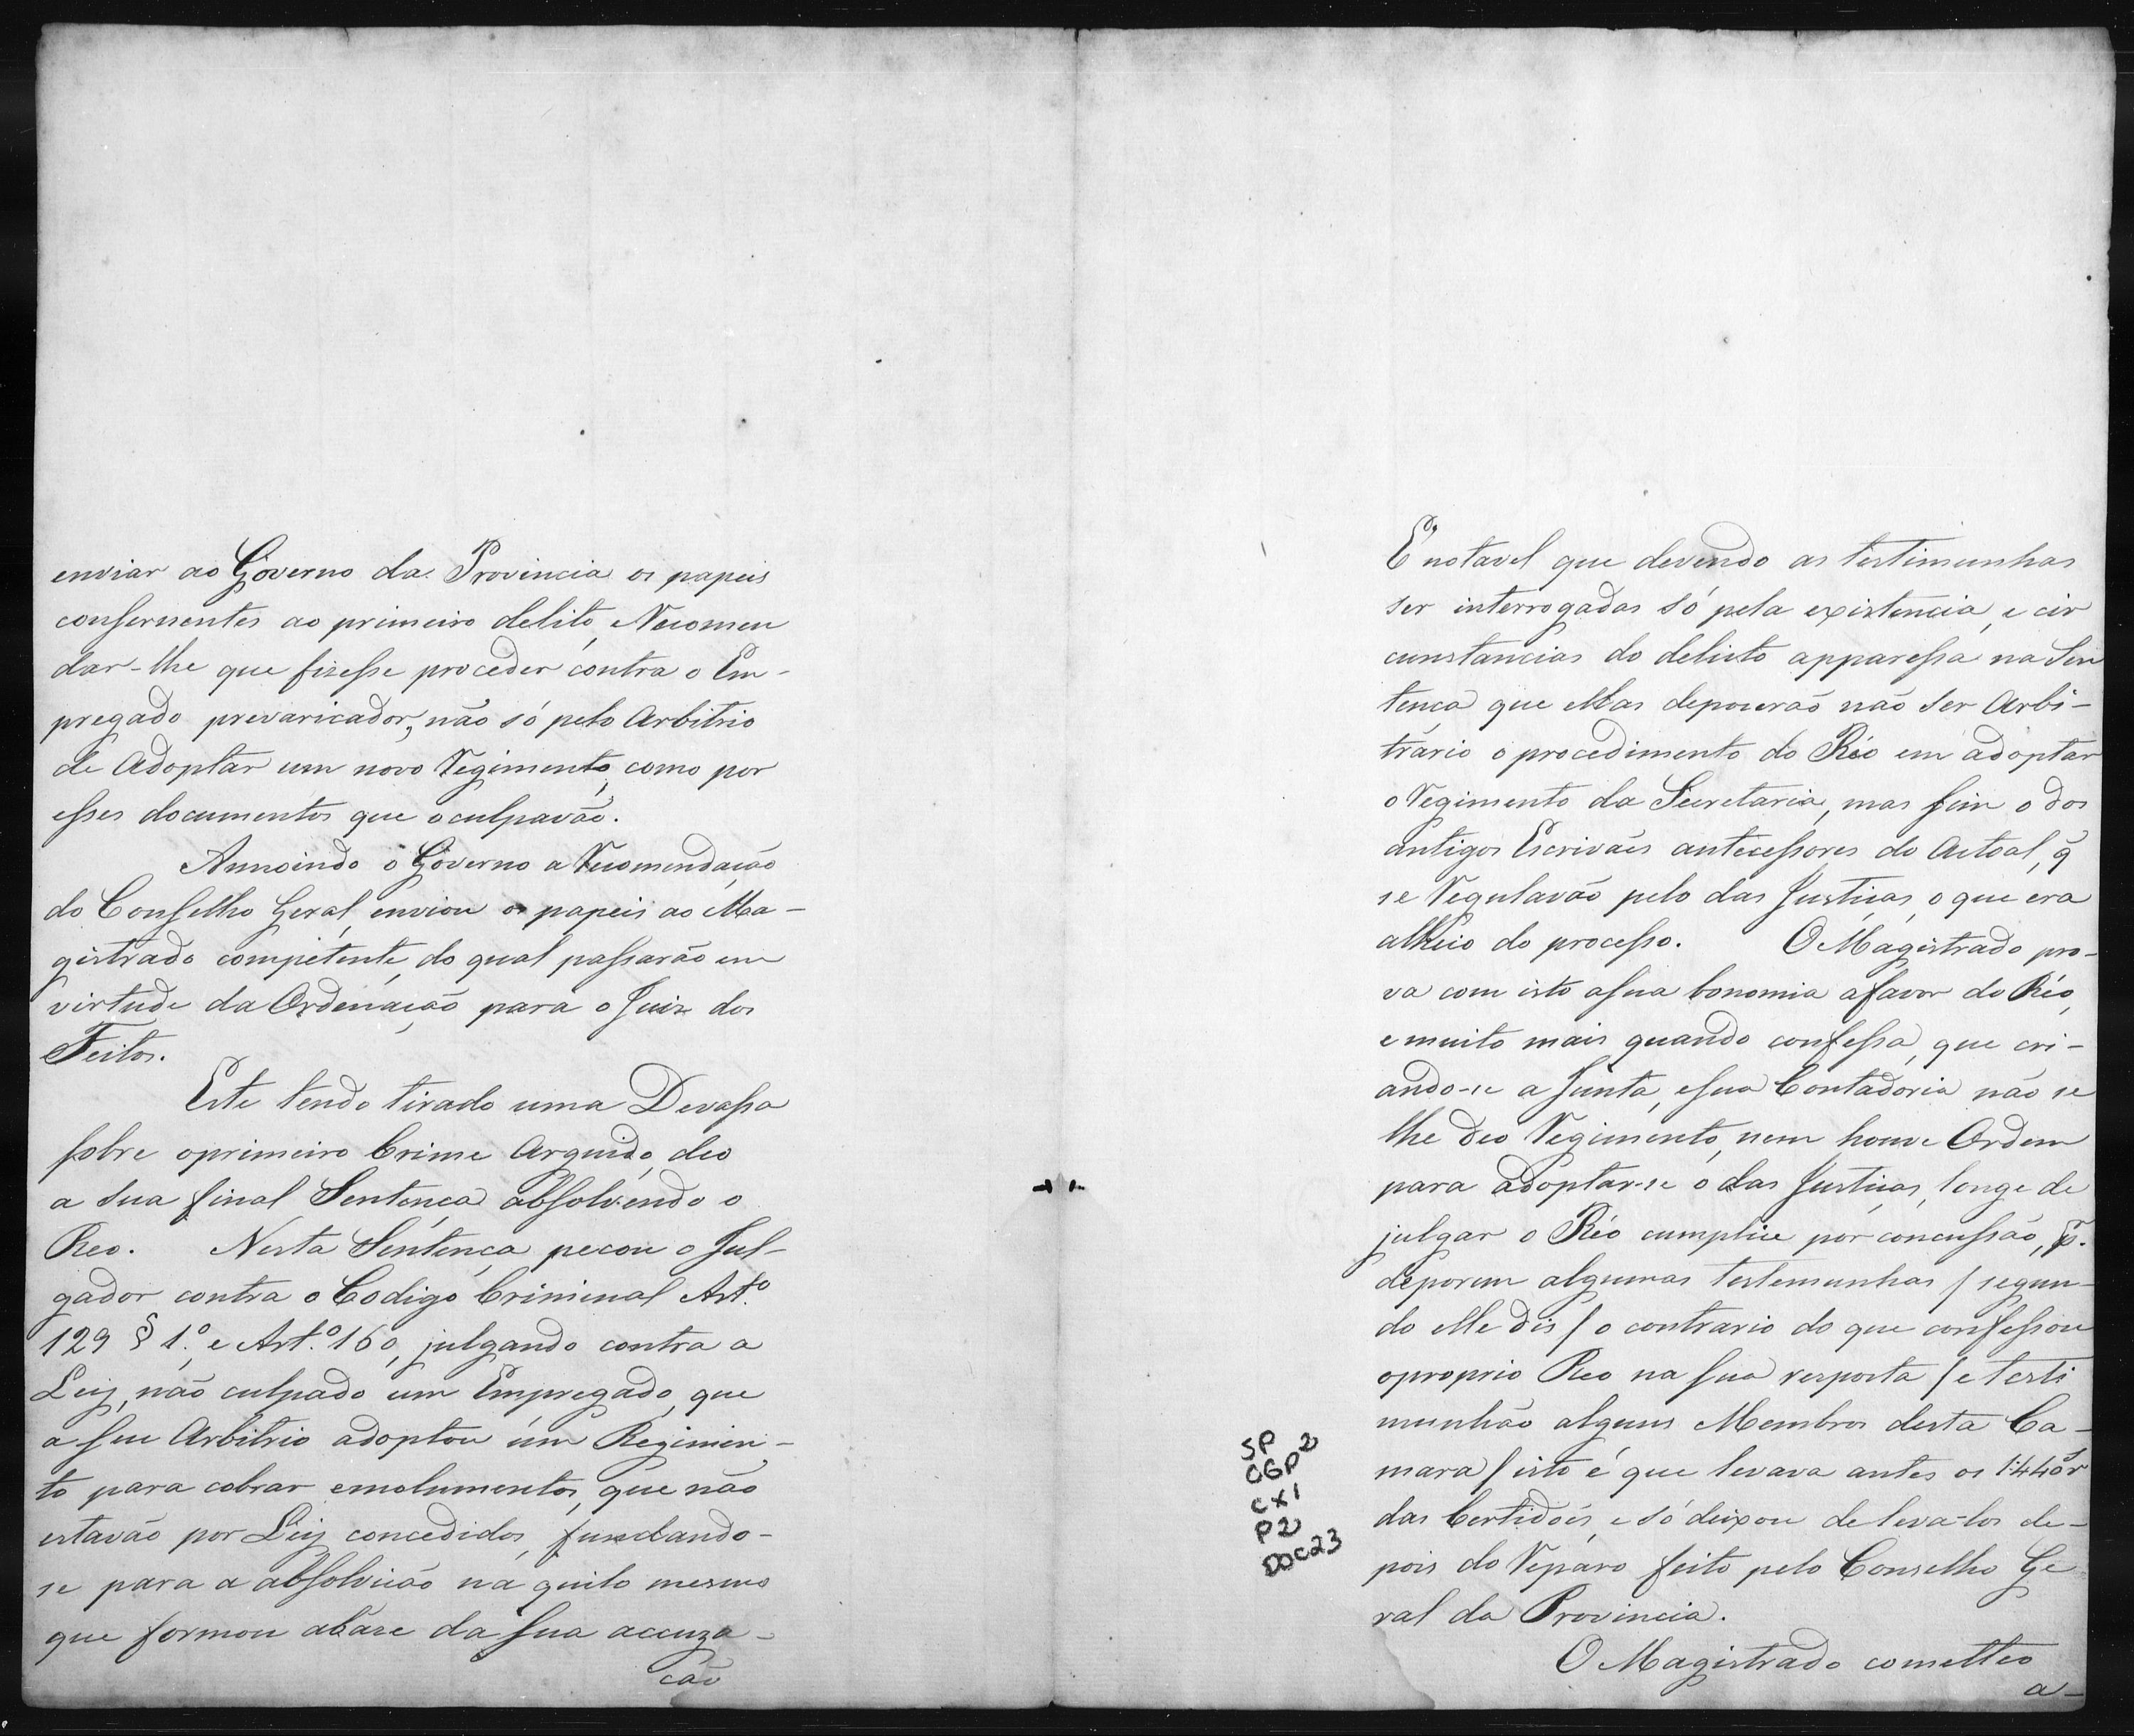 enviar ao Governo da Provincia os papeis
consernentes ao primeiro delito, e Recomen
dar-lhe que fizesse proceder contra o Em-
pregado prevaricador, não só pelo Arbitrio
de Adoptar um novo Regimento, como por
esses documentos que o culpavão.
Annoindo o Governo a Recomendação
do Conselho Geral, enviou os papeis ao Ma-
gistrado competente, do qual passarão em
virtude da Ordenação para o Juiz dos
Feitos.
Este tendo tirado uma Devassa
sobre o primeiro Crime Arguido, deo
a sua final Sentença absolvendo o
Reo. Nesta Sentença pecou o Jul-
gador contra o Codigo Criminal Art.º
129 § 1.º, e Art.º 160, julgando contra a
Ley, não culpado um Empregado, que
a seu Arbitrio adoptou um Regimen-
to para cobrar emolumentos, que não
estavão por Ley concedidos, fundando-
se para a absolvição na quilo mesmo
que formou abaze da sua accuza-
ção
É notavel que devendo as testimunhas
ser interrogadas só pela existencia, e cir
cunstancias do delicto apparessa na Sen
tença que Ellas depouerão não ser Arbi-
trario o procedimento do Réo em adoptar
o Regimento da Secretaria, mas sim o dos
antigos Escrivães antecessores do Actoal, q̃
se Regulavão pelo das Justiças, o que era
alheio do processo. O Magistrado pro-
va com isto a sua bonomia a favor do Réo,
e muito mais quando confessa, que cri-
ando-se a Junta, e sua Contadoria não se
lhe deo Regimento, nem houve Ordem
para adoptar-se o das Justiças, longe de
julgar o Réo cumplice por concussão, p.
deporem algumas testemunhas / segun-
do elle dis / o contrario do que confessou
o proprio Reo na sua resposta / e testi
munhão alguns Membros desta Ca-
mara / isto é que levava antes os 1:440 r
das Certidoẽs, e só deixou de leva-los de-
pois do Reparo feito pelo Conselho Ge
ral da Provincia.
O Magistrado cometteo
a-
SP
CGP2
CX1
P2
DOC23